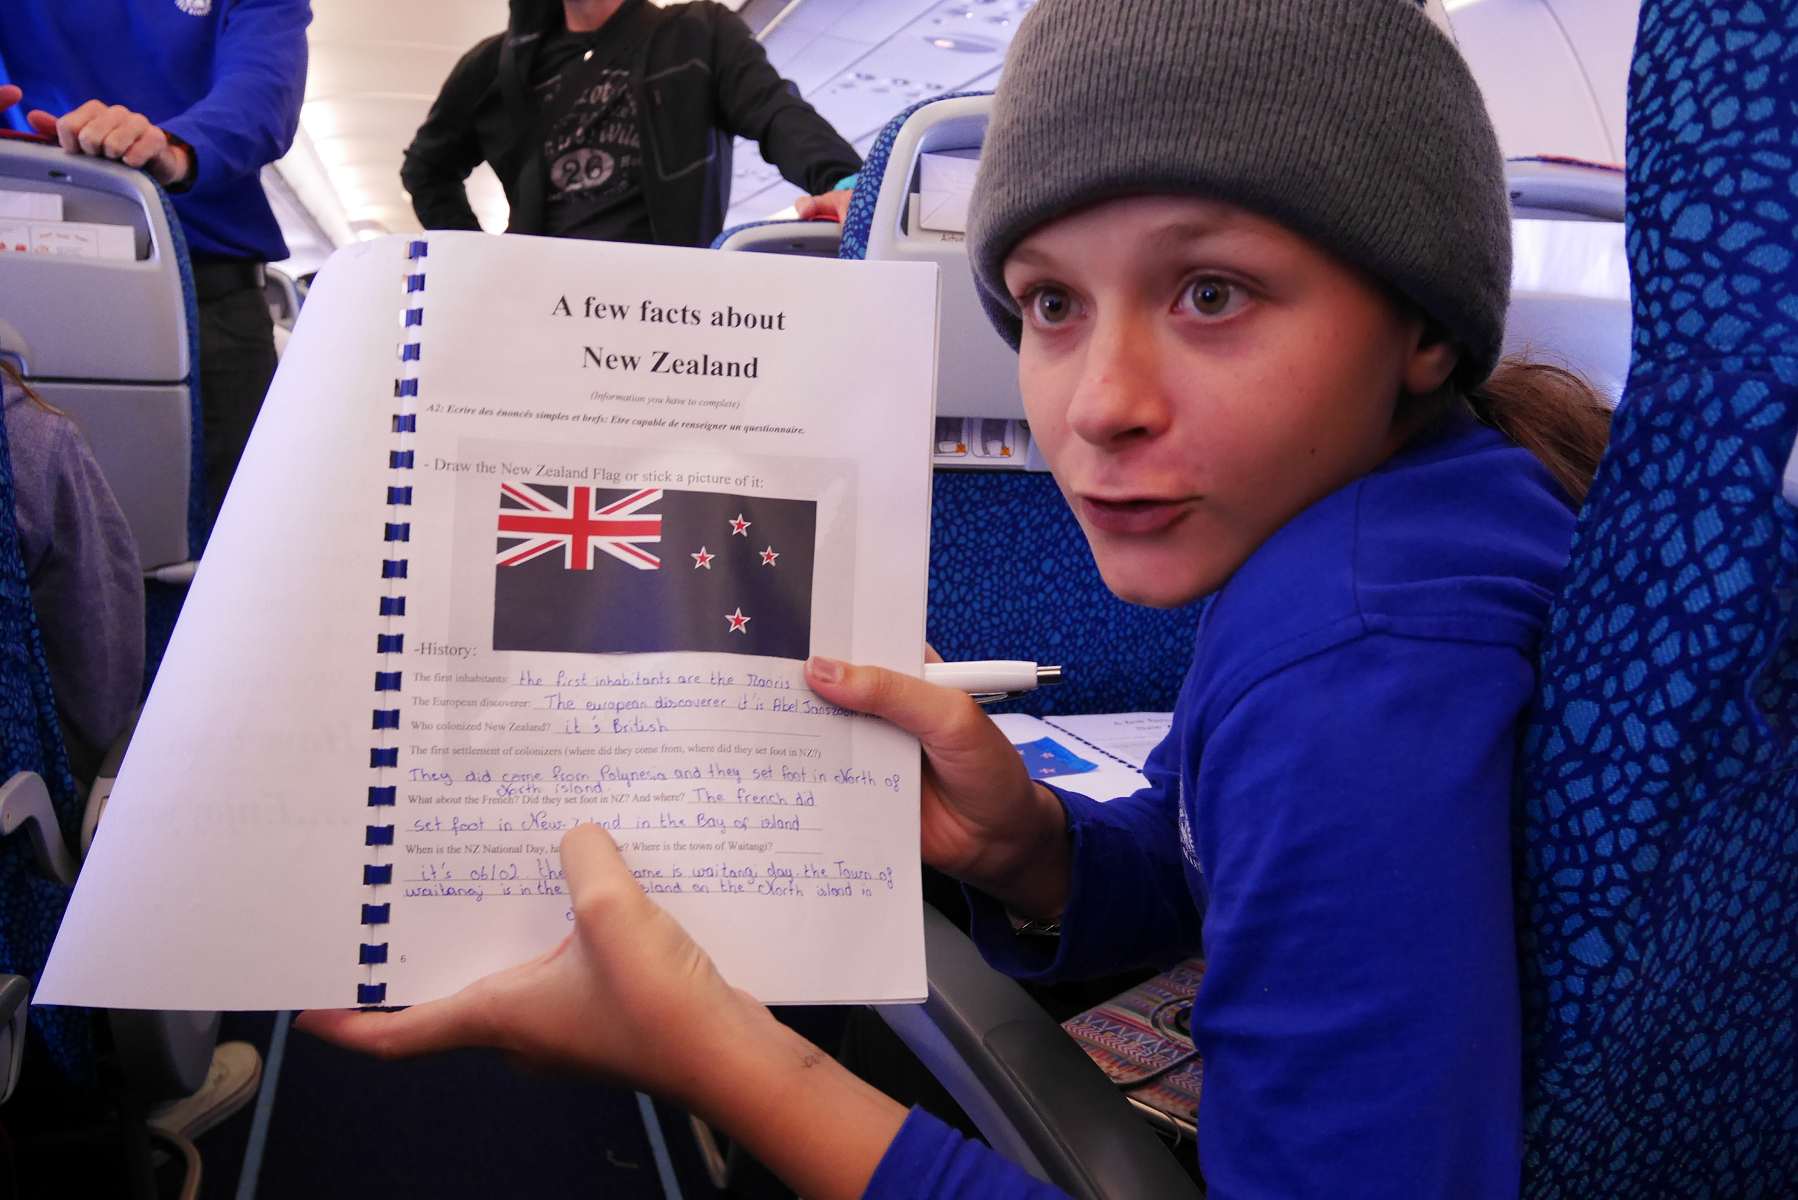 26
A few facts about
New Zealand
(Information you have to complete)
A2: Ecrire des énoncés simples et brefs: Etre capable de renseigner un questionnaire.
- Draw the New Zealand Flag or stick a picture of it:
-History:
The first inhabitants: the first inhabitants are the Maoris
The European discoverer: The european discoverer it's Abel Janszoon
Who colonized New Zealand? it's British
The first settlement of colonizers (where did they come from, where did they set foot in NZ?)
They did come from Polynesia and they set foot in North of
North island.
What about the French? Did they set foot in NZ? And where? The french did
set foot in New-Zeland in the Bay of island
When is the NZ National Day, ? Where is the town of Waitangi?
it's 06/02. the name is waitang day. the Town of
waitangi is in the island on the North island in
6